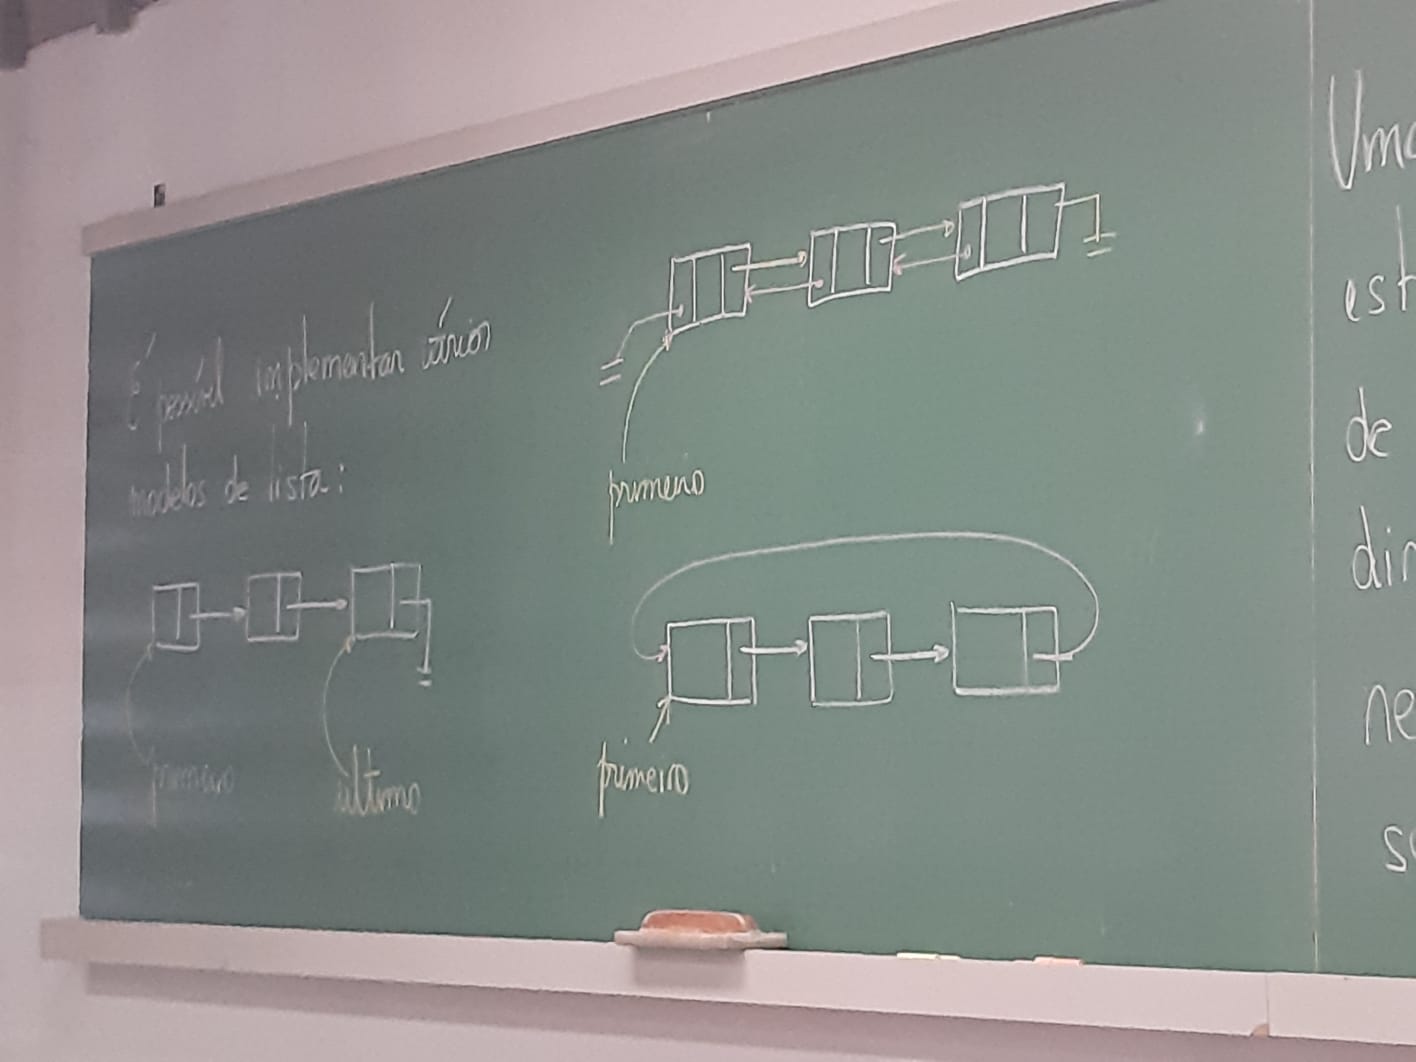 É possível implementar vários
modelos de lista:
primeiro
último
primeiro
primeiro
Uma
est
de
din
ne
s